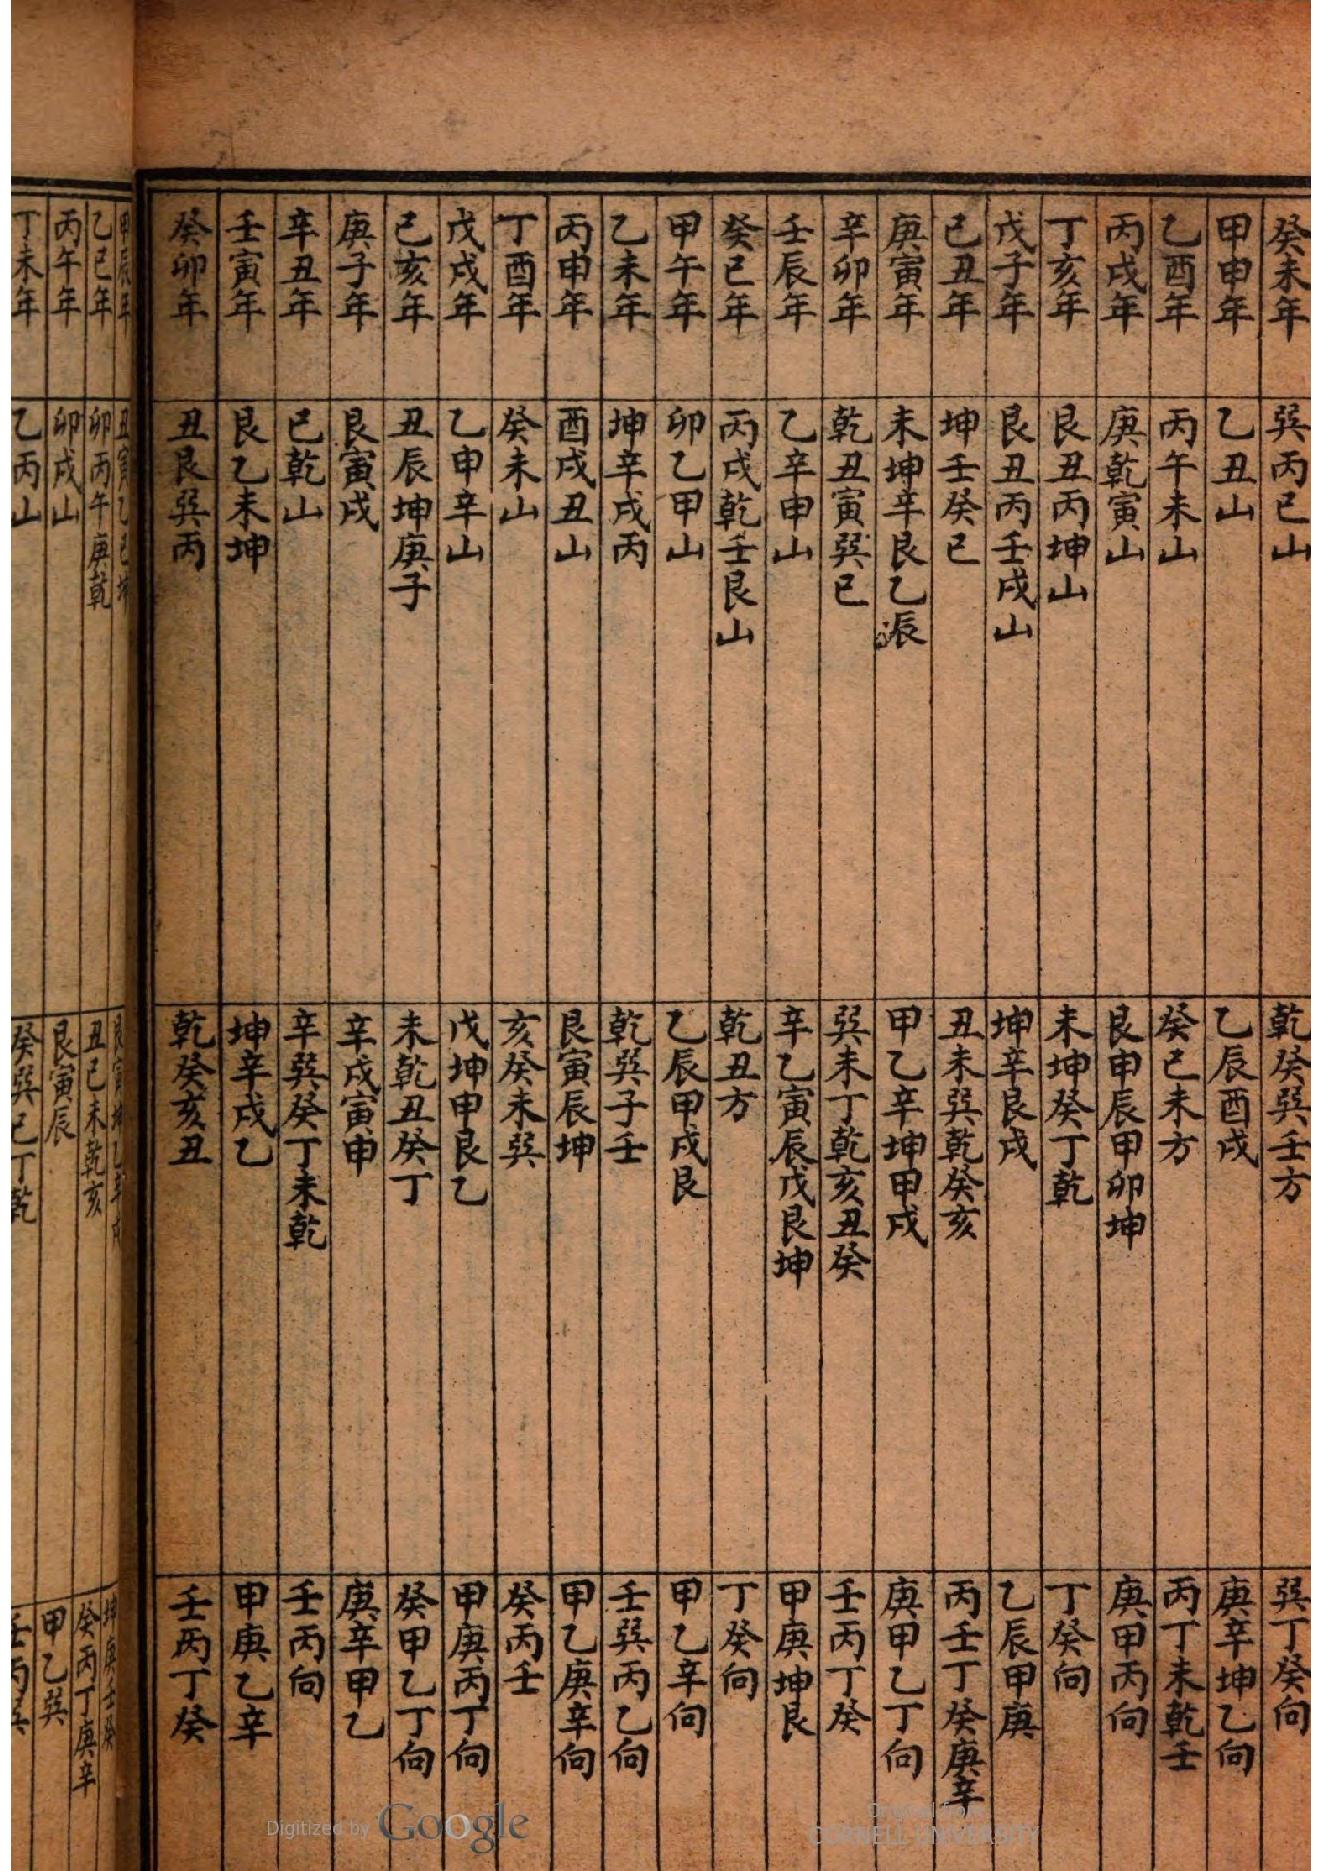 癸未年 巽丙巳山 乾癸巽壬方 巽丁癸向
甲申年 乙丑山 乙辰酉戌 庚辛坤乙向
乙酉年 丙午未山 癸巳未方 丙丁未乾壬
丙戌年 庚乾寅山 艮申辰甲卯坤 庚甲丙向
丁亥年 艮丑丙坤山 未坤癸丁乾 丁癸向
戊子年 艮丑丙壬戌山 坤辛艮戌 乙辰甲庚
己丑年 坤壬癸巳 丑未巽乾癸亥 丙壬丁癸庚辛
庚寅年 未坤辛艮乙辰 甲乙辛坤甲戌 庚甲乙丁向
辛卯年 乾丑寅巽巳 巽未丁乾亥丑癸 壬丙丁癸
壬辰年 乙辛申山 辛乙寅辰戌艮坤 甲庚坤艮
癸巳年 丙戌乾壬艮山 乾丑方 丁癸向
甲午年 卯乙甲山 乙辰甲戌艮 甲乙辛向
乙未年 坤辛戌丙 乾巽子壬 壬巽丙乙向
丙申年 酉戌丑山 艮寅辰坤 甲乙庚辛向
丁酉年 癸未山 亥癸未巽 癸丙壬
戊戌年 乙申辛山 戊坤申艮乙 甲庚丙丁向
己亥年 丑辰坤庚子 未乾丑癸丁 癸甲乙丁向
庚子年 艮寅戌 辛戌寅申 庚辛甲乙
辛丑年 巳乾山 辛巽癸丁未乾 壬丙向
壬寅年 艮乙未坤 坤辛戌乙 甲庚乙辛
癸卯年 丑艮巽丙 乾癸亥丑 壬丙丁癸
甲辰年 丑寅乙巳坤 坤庚壬癸
乙巳年 卯丙午庚乾 丑巳未乾亥 癸丙丁庚辛
丙午年 卯戌山 艮寅辰 甲乙巽
丁未年 乙丙山 癸巽巳丁乾 壬丙巽
Digitized by Google
Original from
CORNELL UNIVERSITY